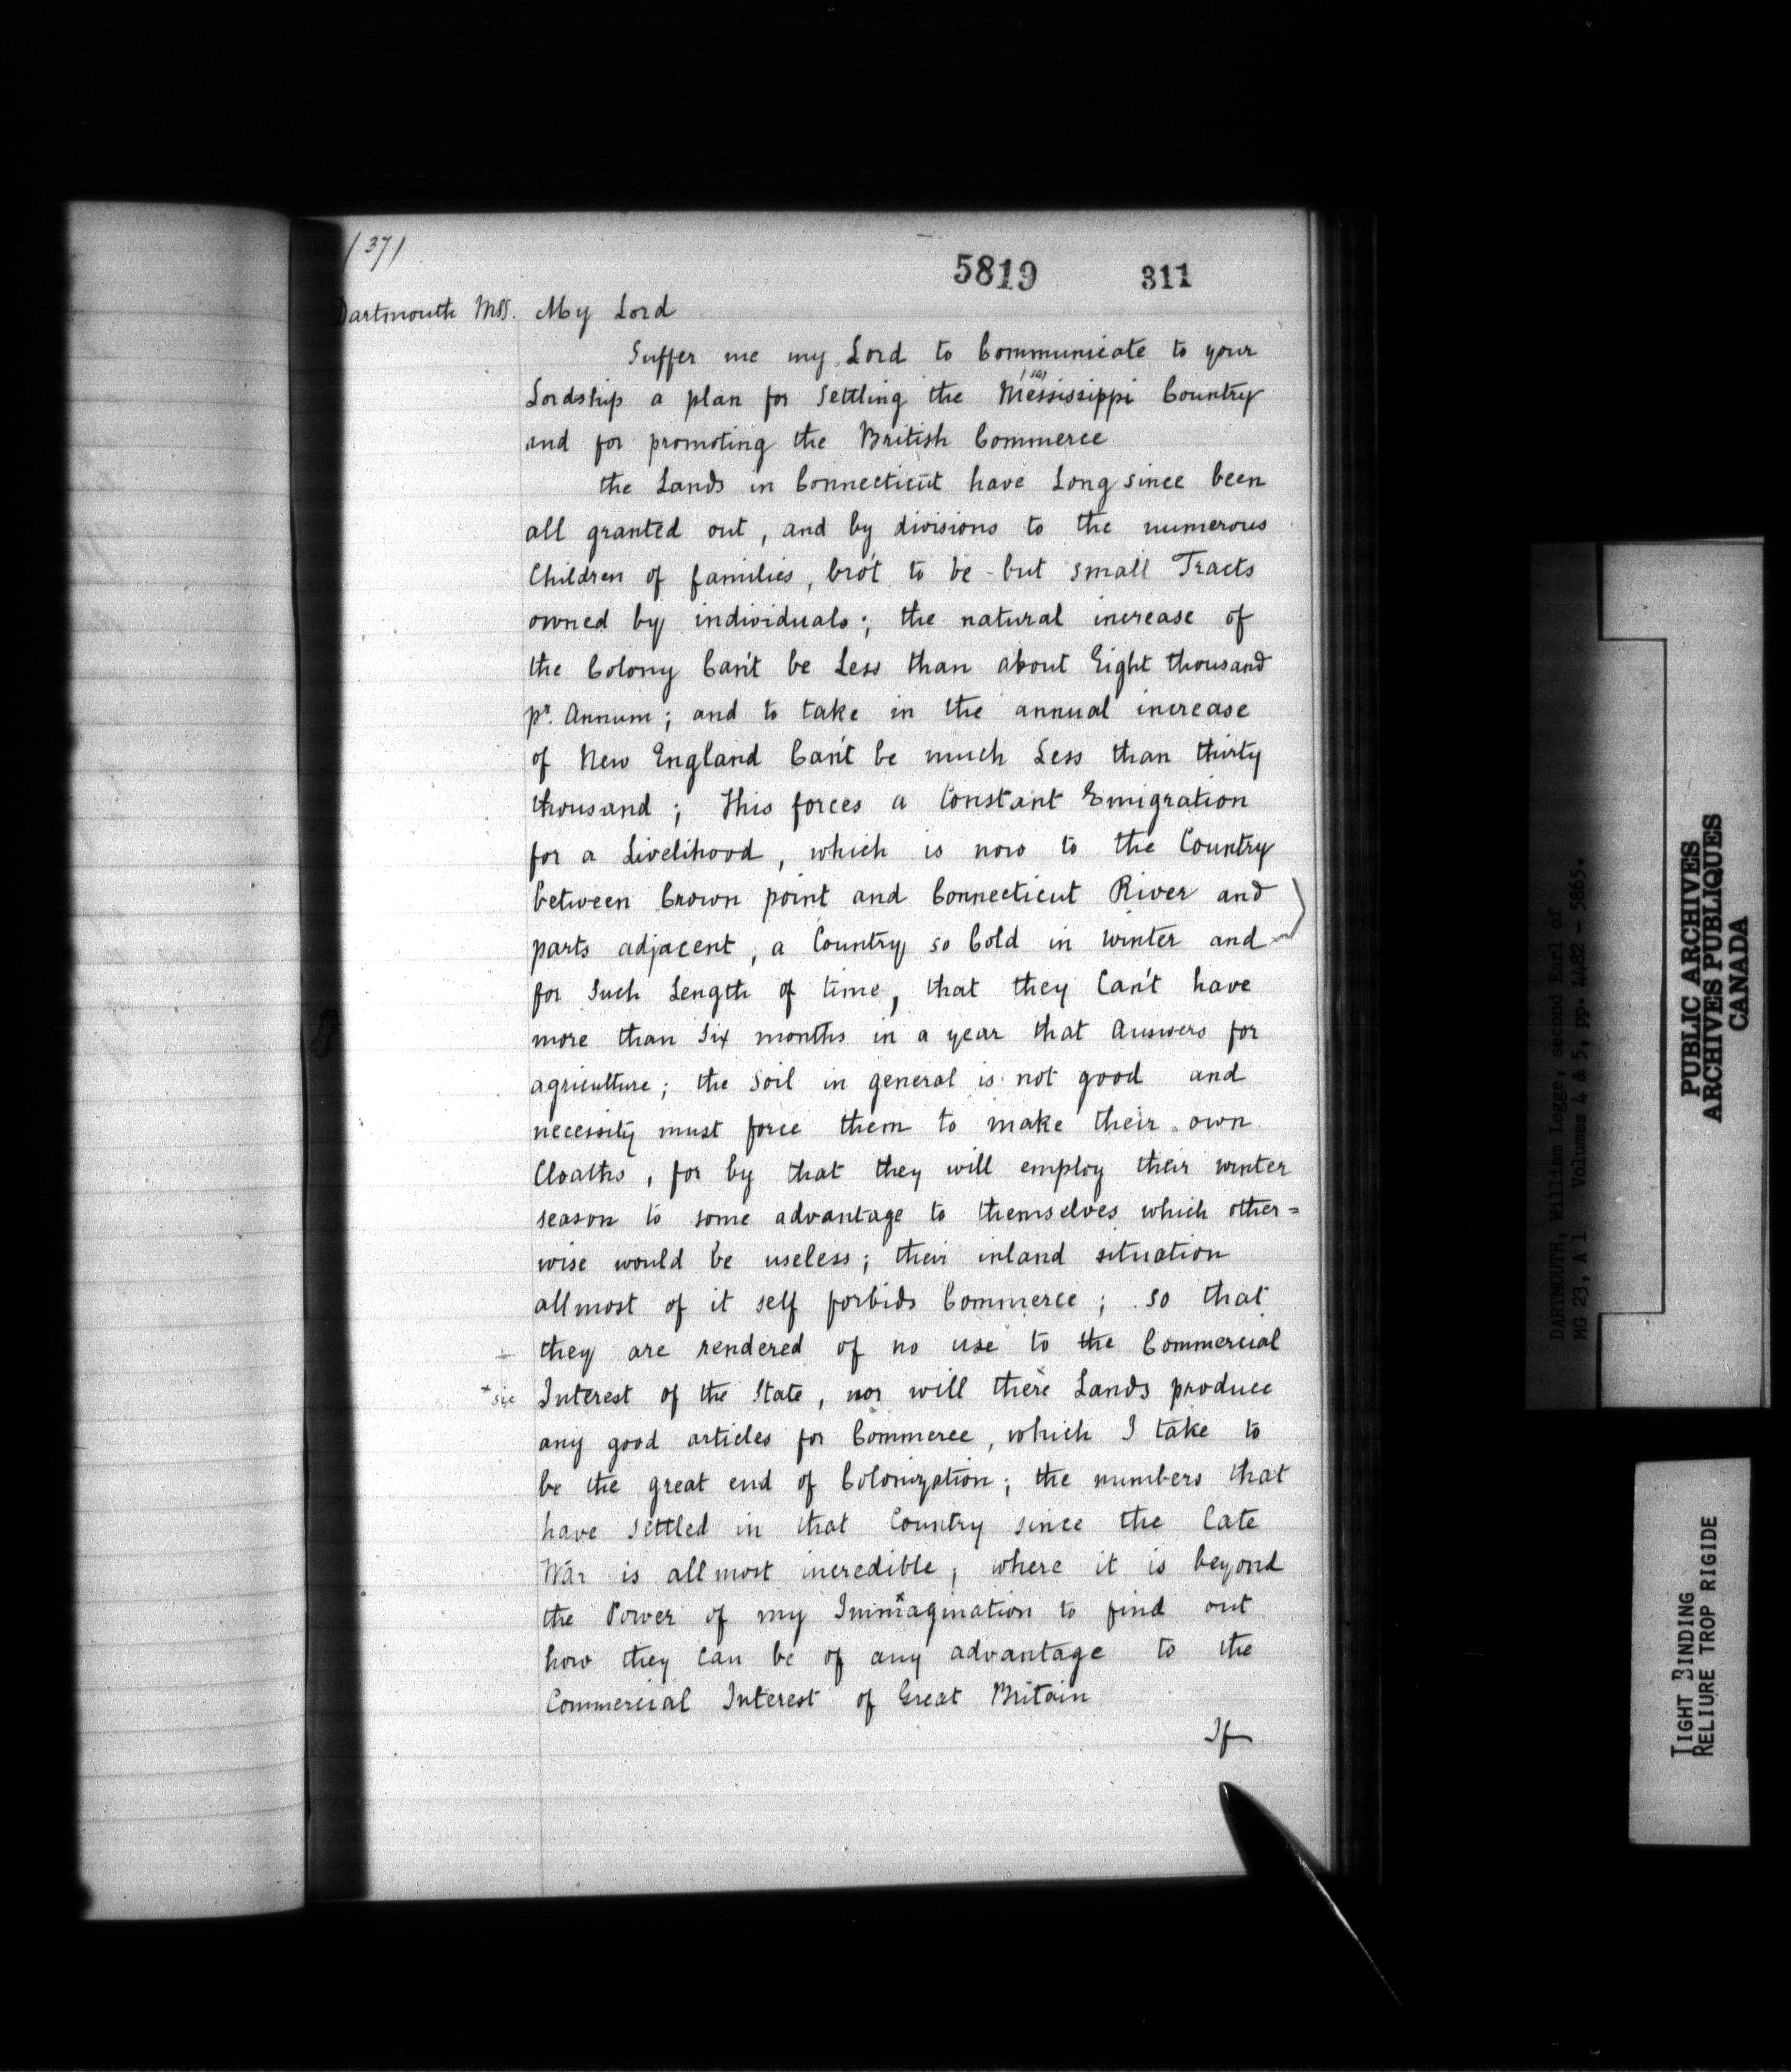 /37/
5819 311
Dartmouth Mss. My Lord
Suffer me my Lord to Communicate to your
Lordship a plan for Settling the Messissippi Country
/sic/
and for promoting the British Commerce
the Lands in Connecticut have Long since been
all granted out, and by divisions to the numerous
Children of families, bro't to be but small Tracts
owned by individuals; the natural increase of
the Colony Can't be Less than about Eight thousand
pr. Annum; and to take in the annual increase
of New England Can't be much Less than thirty
thousand; This forces a Constant Emigration
for a Livelihood, which is now to the Country
between Crown point and Connecticut River and
parts adjacent, a Country so Cold in winter and
for Such Length of time, that they Can't have
more than Six months in a year that Answers for
agriculture; the Soil in general is not good and
necessity must force them to make their own
Cloaths, for by that they will employ their winter
season to some advantage to themselves which other=
wise would be useless; their inland situation
allmost of it self forbids Commerce; so that
they are rendered of no use to the Commercial
+ sic Interest of the State, nor will there Lands produce
any good articles for Commerce, which I take to
be the great end of Colonization; the numbers that
have settled in that Country since the Late
War is allmost incredible, where it is beyond
the Power of my Immagination to find out
how they can be of any advantage to the
Commercial Interest of Great Britain
If
DARTMOUTH, William Legge, second Earl of
MG 23, A 1 Volumes 4 & 5, pp. 4482 - 5865.
PUBLIC ARCHIVES
ARCHIVES PUBLIQUES
CANADA
TIGHT BINDING
RELIURE TROP RIGIDE